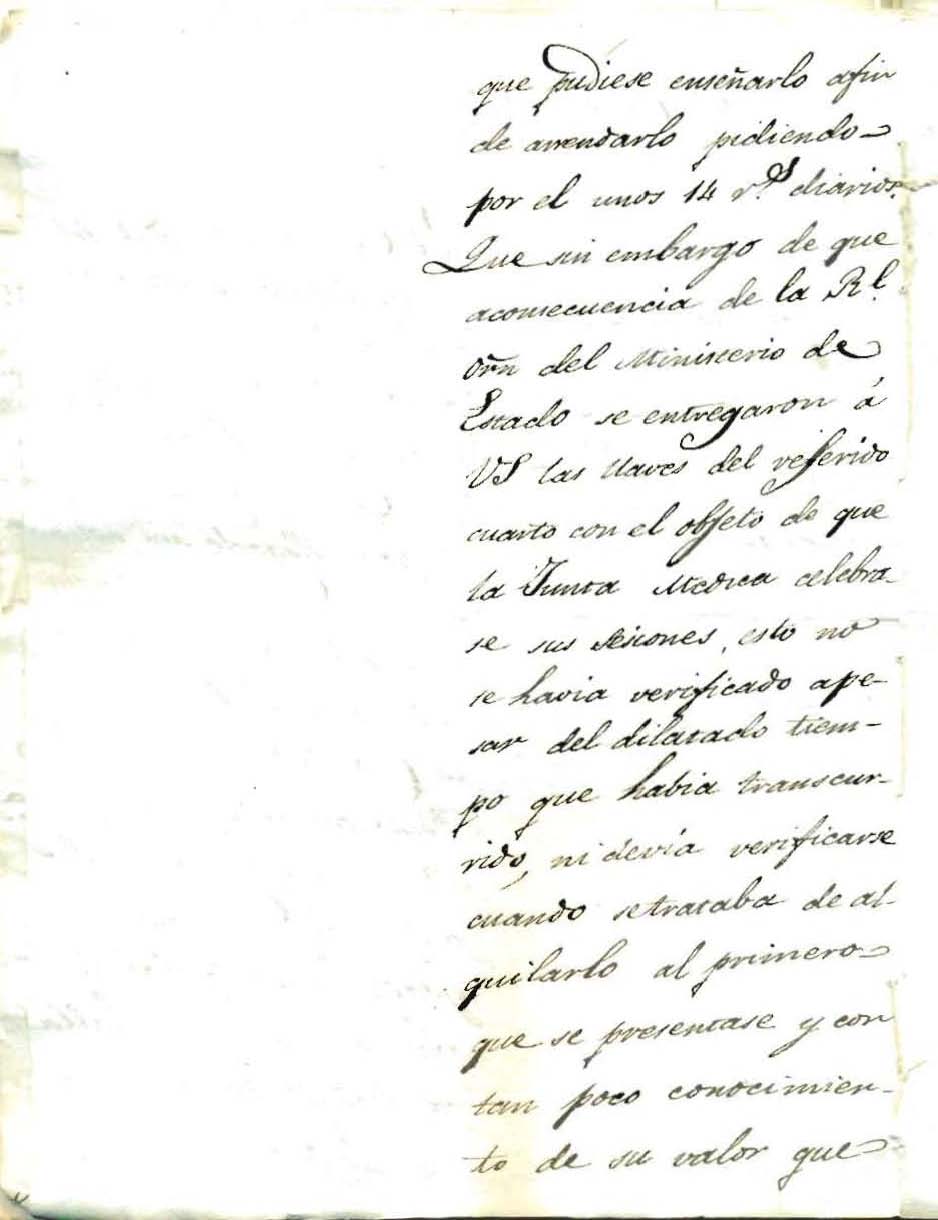 que pudiese enseñarlo afin
de arrendarlo pidiendo
por el unos 14 r.s diarios.
Que sin embargo de que
aconsecuencia de la Rl.
orñ del Ministerio de
Estado se entregaron á
VS las llaves del referido
cuarto con el objeto de que
la Junta Medica celebra-
se sus sesiones, esto no
se havia verificado ape-
sar del dilatado tiem-
po que habia transcur-
rido, ni devía verificarse
cuando setrataba de al-
quilarlo al primero
que se presentase y con
tan poco conocimien-
to de su valor que